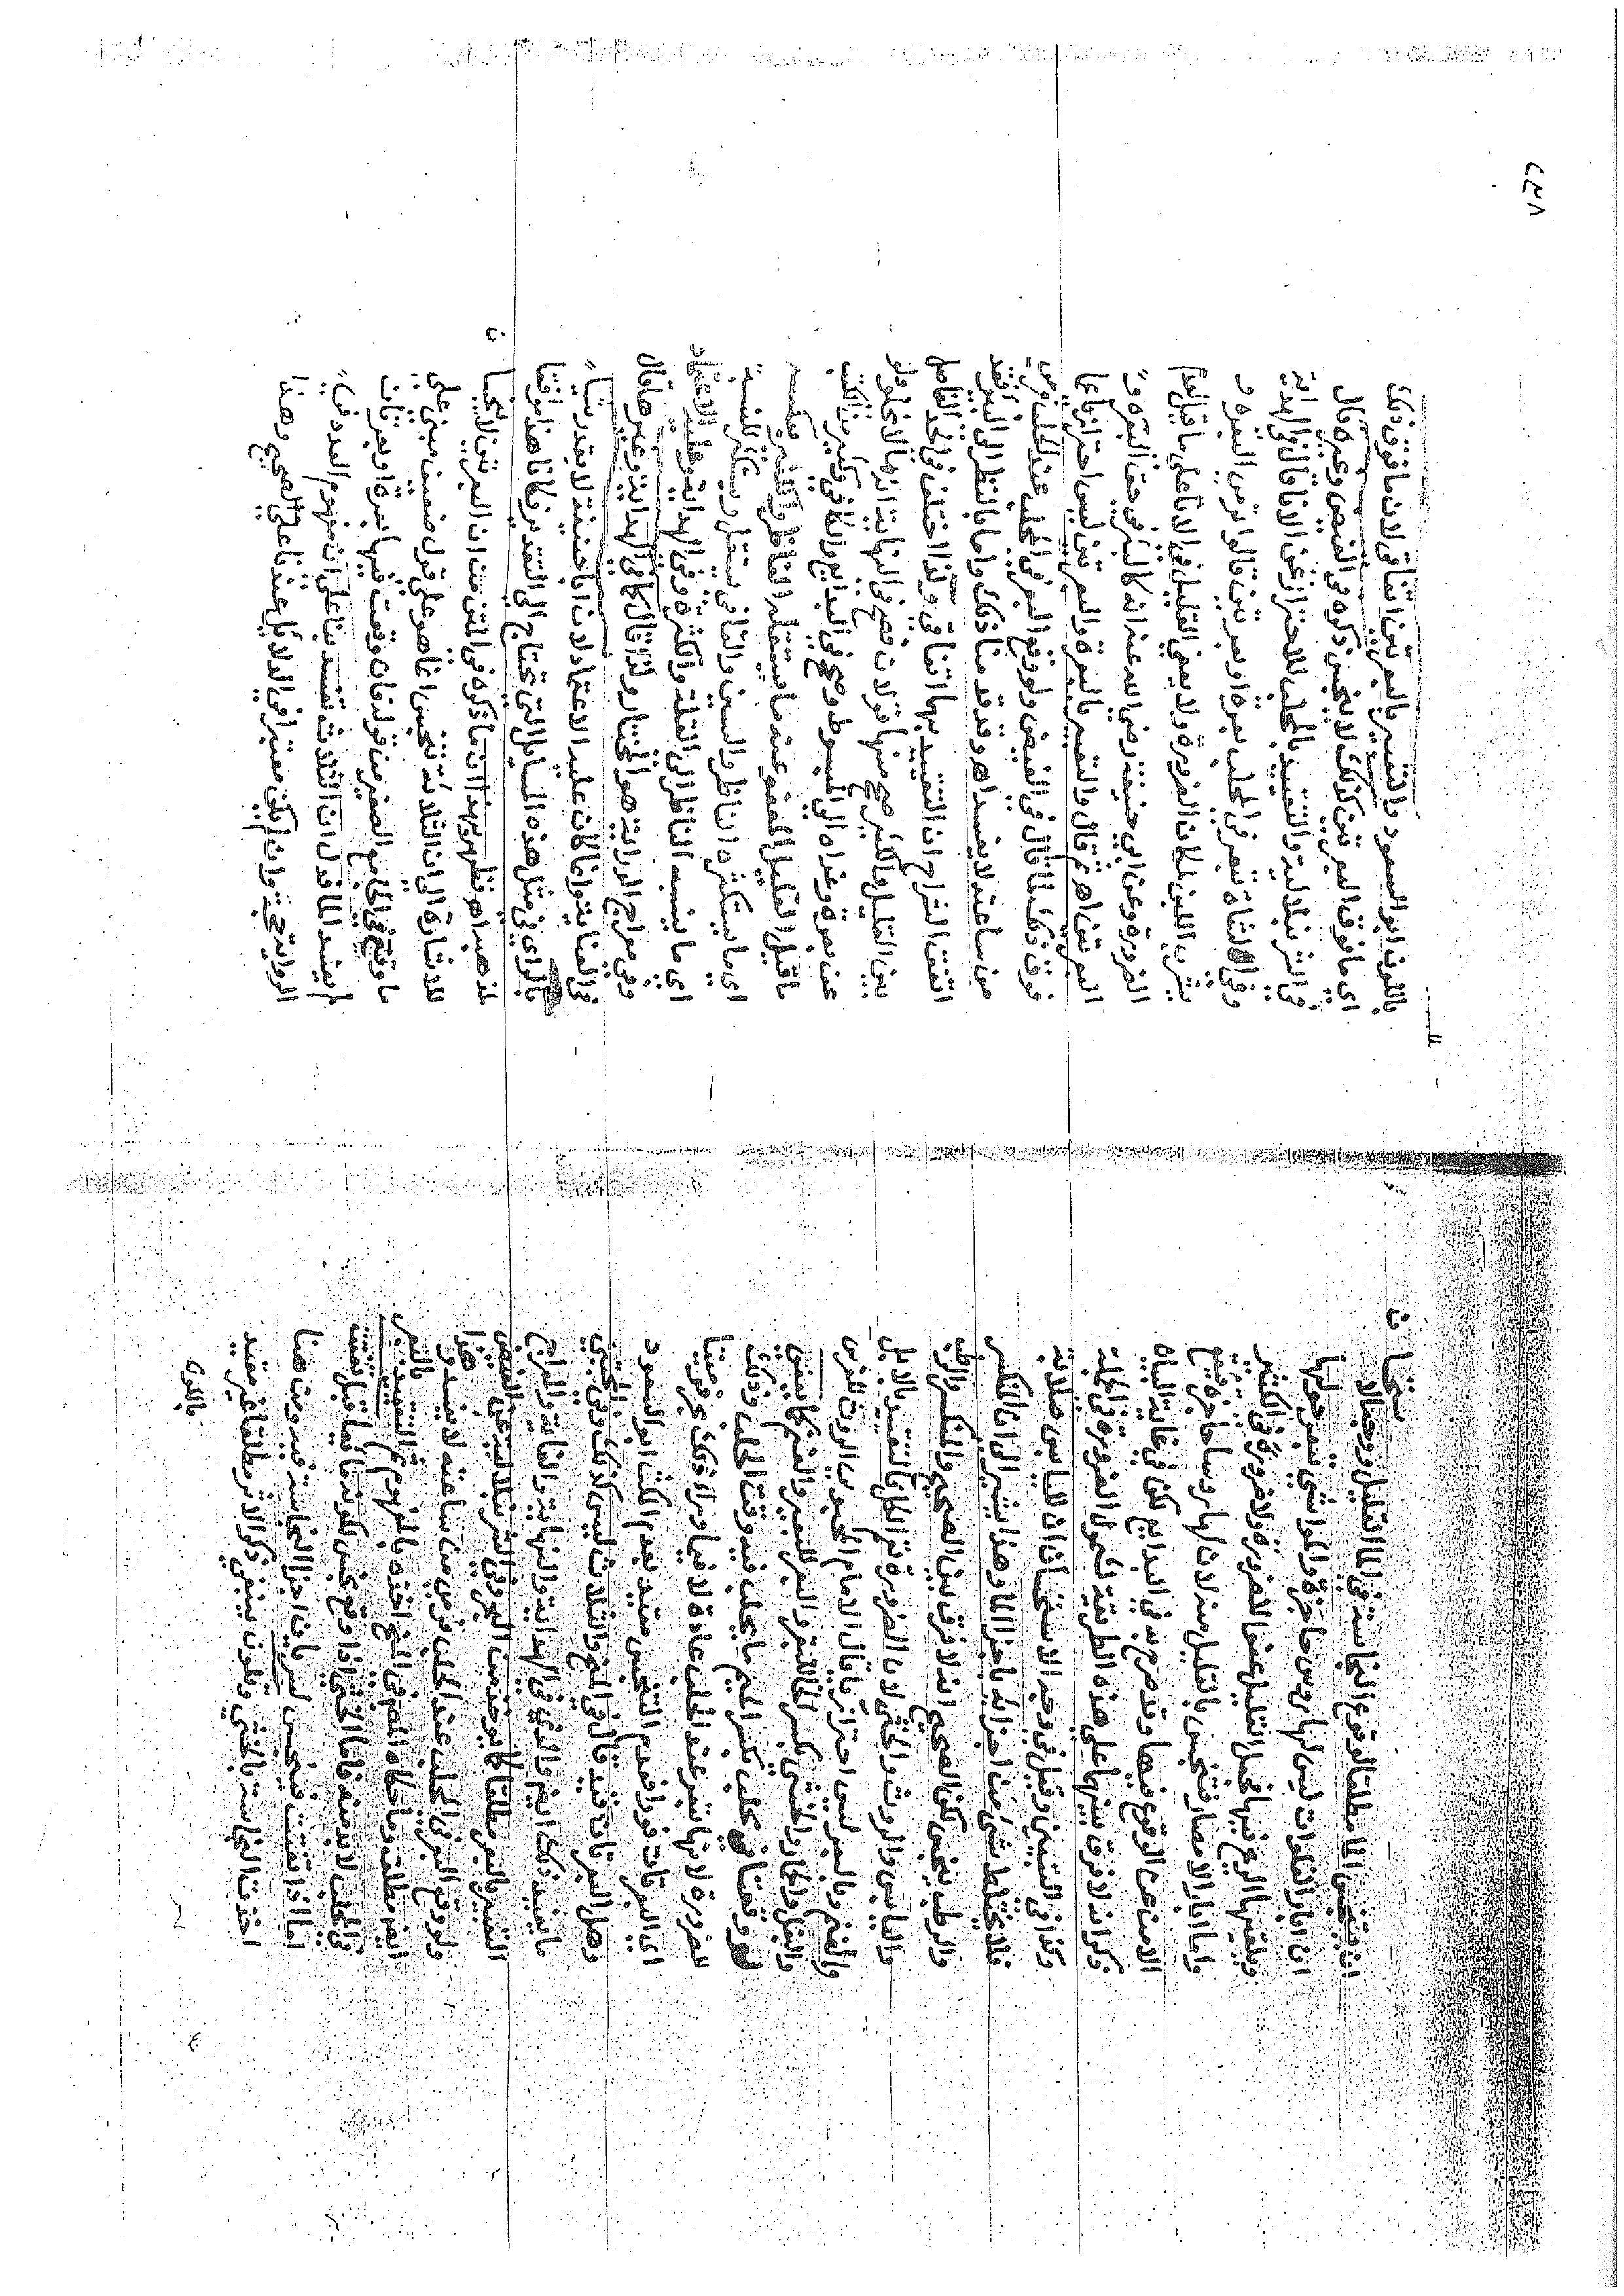 ان يتنجس الماء مطلقا لوقوع النجاسة في الماء القليل ووجه الا ستحسان
ان ابار الفلوات ليس لها رؤس حاجزة والمواشي تبعر حولها
ويلقيها الريح فيها فجعل القليل عفوا للضرورة ولا ضرورة في الكثير
واما ابار الامصار فتنجس بالقليل منه لان لها رؤسا حاجزة فيقع
الامن عن الوقوع فيها وقد صرح به في البدايع لكن في غاية البيان
ذكر انه لا فرق بينهما على هذه الطريقة لشمول الضرورة في الجملة
وكذا في التبيين وقيل في وجه الاستحسان ان لليابس صلابة
فلا يختلط شئ من اجزائه باجزاء الماء وهذا يشير الى ان المنكسر
والرطب ينجس لكن الصحيح انه لا فرق بين الصحيح والمنكسر والرطب
واليابس والروث والخثى لان الضرورة تعم الكل فالتقييد بالابل
والغنم وبالبعر ليس احترازيا قال الامام المحبوبي الروث للفرس
والبغل والحمار والخثي بكسر الخاء للبقر والبعر للبعير والغنم كما يعفى
لو وقعتا في محلب بكسر الميم ما يحلب فيه وقت الحلب وذلك
للضرورة لانها تبعر عند الحلب عادة لا فيما وراء ذلك بحر فرميتا
اي البعرتان فورا فعدم التنجس مقيد بعدم المكث ابو السعود
وهل البعرتان قيد قال في المنح والثلاث ليس كذلك وفي المجتبى
ما يفيد ذلك ايضا والذي في الهداية والنهاية والعناية والسراج
التعبير بالبعر مطلقا كما يوخذ من البحر وفي الشرنبلالية عن الفيض
ولو وقع البعر في المحلب عند الحلب فرمي من ساعته لا يفسد وهذا
ايضا مطلق وما حكاه المص في المنح اخذه بالمفهوم التقييد بالبعر
في المحلب لابد منه فاما الخثي اذا وقع تنجس لكونه مائعا قبل تفتت
اما اذا تفتتت فيتنجس لسريان اجزاء النجاسة فيه ومن هنا
اخذت النجاسة بالخثي وتلون ينبغي ذكر الاثر مطلقا غير مقيد
باللون
٢٣٨
باللون ابو السعود والتعبير بالبعرتين اتفاقي لان ما فوق ذلك
اي ما فوق البعرتين كذلك لا ينجس ذكره في الفيض وغيره قال
في الشرنبلالية والتقييد بالمحلب للاحتراز عن الاناء قال في الهداية
وفي الشاة تبعر في المحلب بعرة او بعرتين قالوا ترمى البعرة و
يشرب اللبن لمكان الضرورة ولا يعفى القليل في الاناء على ما قيل لعدم
الضرورة وعن ابي حنيفة رضي الله عنه انه كالبئر في حق البعرة و
البعرتين اهـ ثم قال والتعبير بالبعرة والبعرتين ليس احترازا عما
فوق ذلك لما قال في الفيض ولو وقع البعر في المحلب عند الحلب فرمي
من ساعته لا يفسد اهـ وقد قدمنا ذلك واما بالنظر الى البئر فقد
اتفقت الشراح ان التقييد بهما اتفاقي ولذا اختلف في الحد الفاصل
بين القليل والكثير صحح منها قولان فصحح في النهاية انه ما لا يخلو دلو
عن بعرة وعزاه الى المبسوط وصحح في البدايع والكافي وكثير من الكتب
ما قيل القليل المعفو عنه ما يستقله الناظر والكثير بعكسه
اي ما يستكثره الناظر والسين والتاء في يستقل ويستكثر للنسبة
اي ما ينسبه الناظر الى القلة والكثرة وفي الهداية وعليه الاعتماد
وفي معراج الدراية هو المختار ولذا قال كما في الهداية وغيرها قال
في العناية وانما كان عليه الاعتماد لان ابا حنيفة لا يقدر شيا
بالراي في مثل هذه المسايل التي تحتاج الى التقدير فكان هذا موافقا
لمذهبه اهـ فظهر بهذا ان ما ذكره في المتن من ان البعرتين لا ينجسان
للاشارة الى ان الثلاثة تنجس انما هو على قول ضعيف مبني على
ما وقع في الجامع الصغير من قوله فان وقعت فيها بعرة او بعرتان
لم يفسد الماء فدل ان الثلاث تفسد بناء على ان مفهوم العدد في
الرواية حجة وان لم يكن معتبرا في الدلائل عندنا على الصحيح وهذا